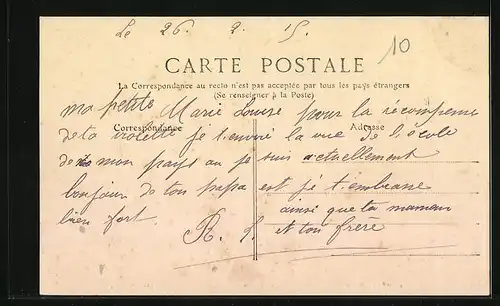 Le 26. 2. 15.
10
CARTE POSTALE
La Correspondance au recto n'est pas acceptée par tous les pays étrangers
(Se renseigner à la Poste)
ma petite Marie Louise pour la récompense
Correspondance
Adresse
de ta violette je t'envoie la vue de l'école
de mon pays au je suis actuellement
bonjour de ton papa est je t'embrasse
bien fort
ainsi que ta maman
et ton frère